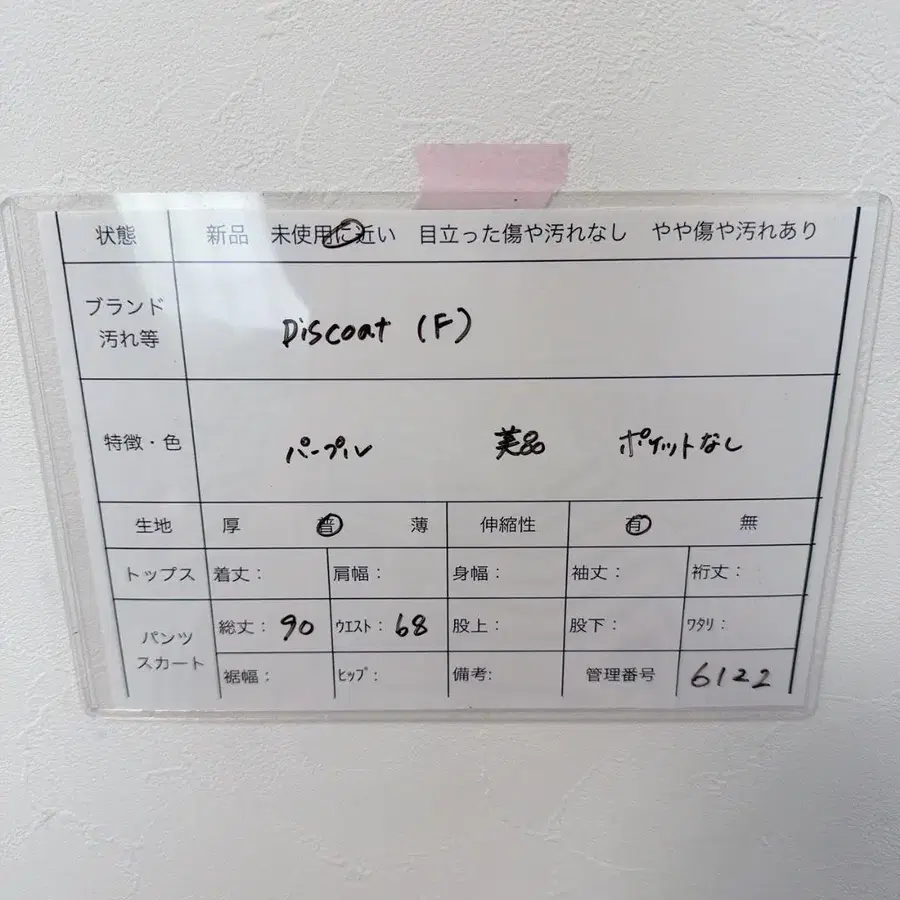 状態 新品 未使用に近い 目立った傷や汚れなし やや傷や汚れあり
ブランド
汚れ等
Discoat (F)
特徴・色 パープル 美品 ポケットなし
生地 厚 普 薄 伸縮性 有 無
トップス 着丈： 肩幅： 身幅： 袖丈： 裄丈：
パンツ
スカート
総丈：90 ウエスト：68 股上： 股下： ワタリ：
裾幅： ヒップ： 備考: 管理番号 6122